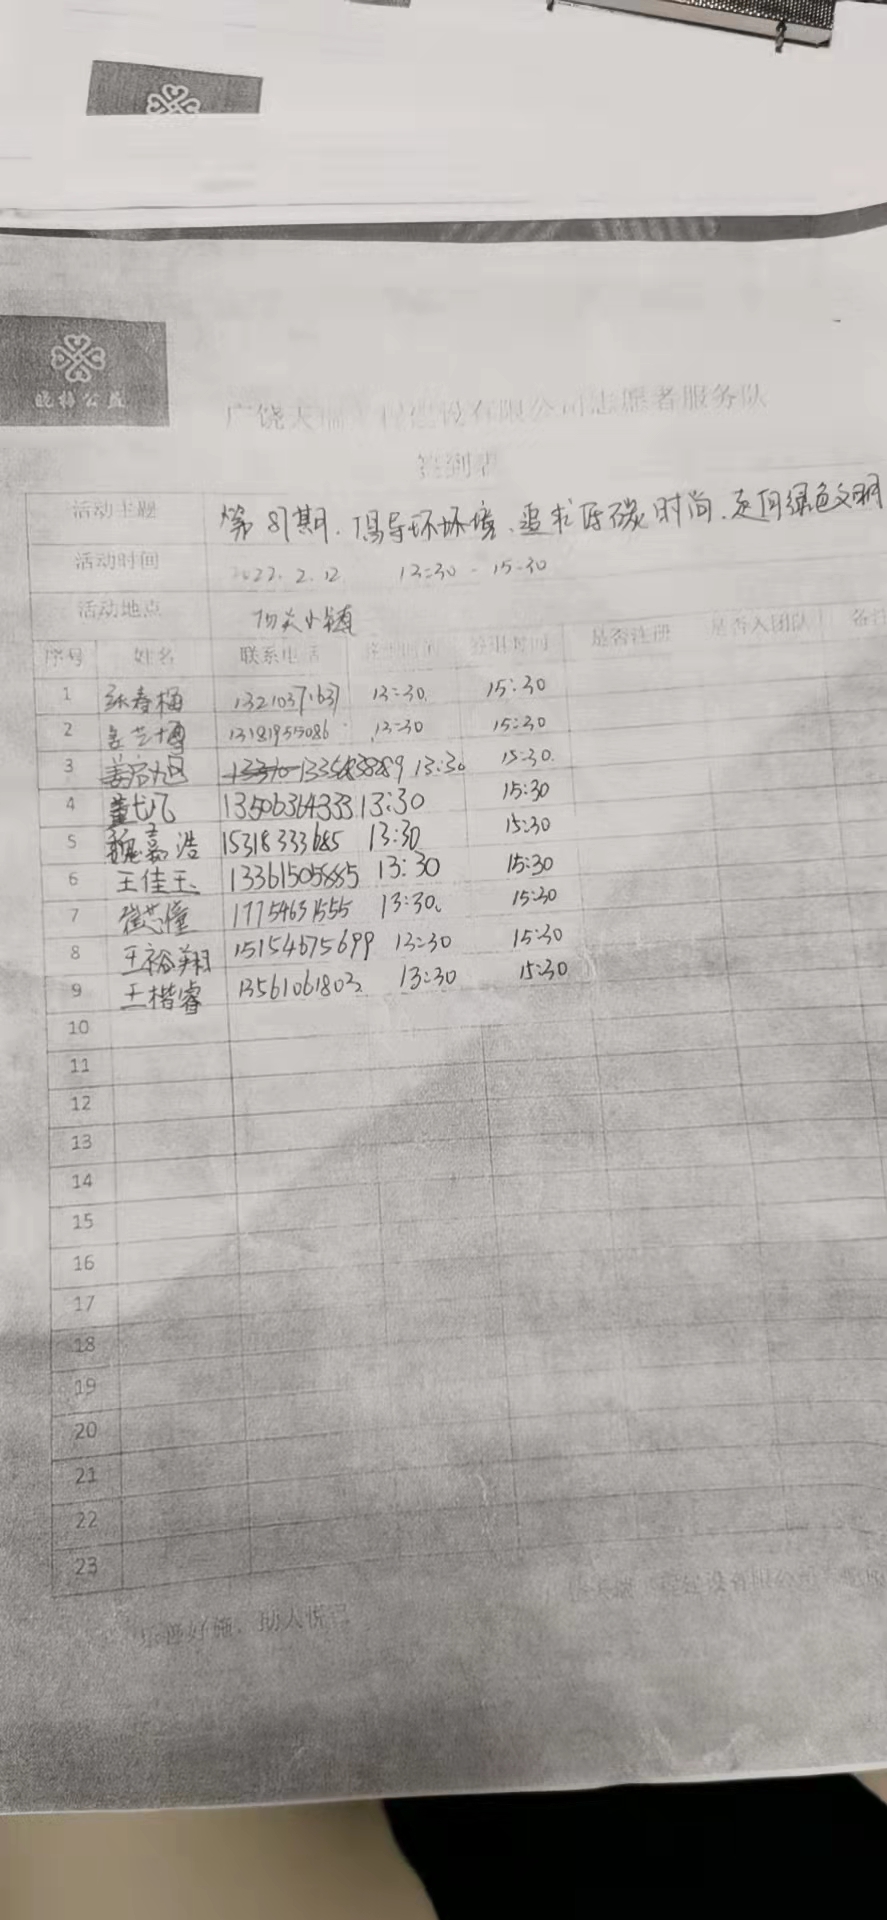 晓梅公益
广饶天瑞工程建设有限公司志愿者服务队
签到表
活动主题 第81期、倡导环环境、追求低碳时尚、走向绿色文明
活动时间 2022.2.12 13:30-15:30
活动地点 小镇
序号 姓名 联系电话 签到时间 签退时间 是否注册 是否入团队 备注
1 张春梅 13:30 15:30
2 13181955086 13:30 15:30
3 13:30 15:30
4 13506364333 13:30 15:30
5 魏嘉浩 15318333685 13:30 15:30
6 王佳玉 13:30 15:30
7 崔芯憧 17754631555 13:30 15:30
8 王裕翔 15154675699 13:30 15:30
9 王楷睿 13561061802 13:30 15:30
10
11
12
13
14
15
16
17
18
19
20
21
22
23
乐善好施，助人悦己